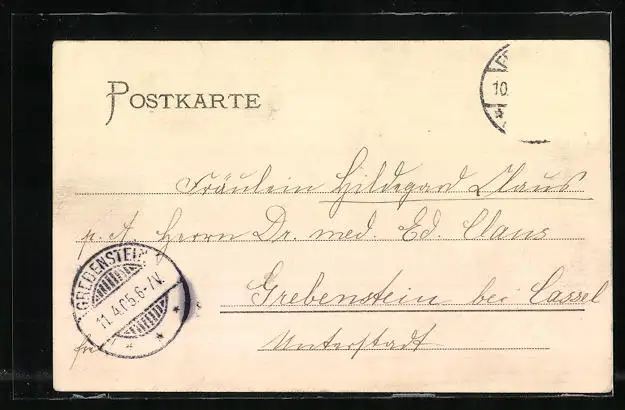 POSTKARTE
10.
Fräulein Hildegard Claus
p. A. Herrn Dr. med. Ed. Claus
Grebenstein bei Cassel
Unterstadt
GREBENSTEIN
11.4.05.6-7V.